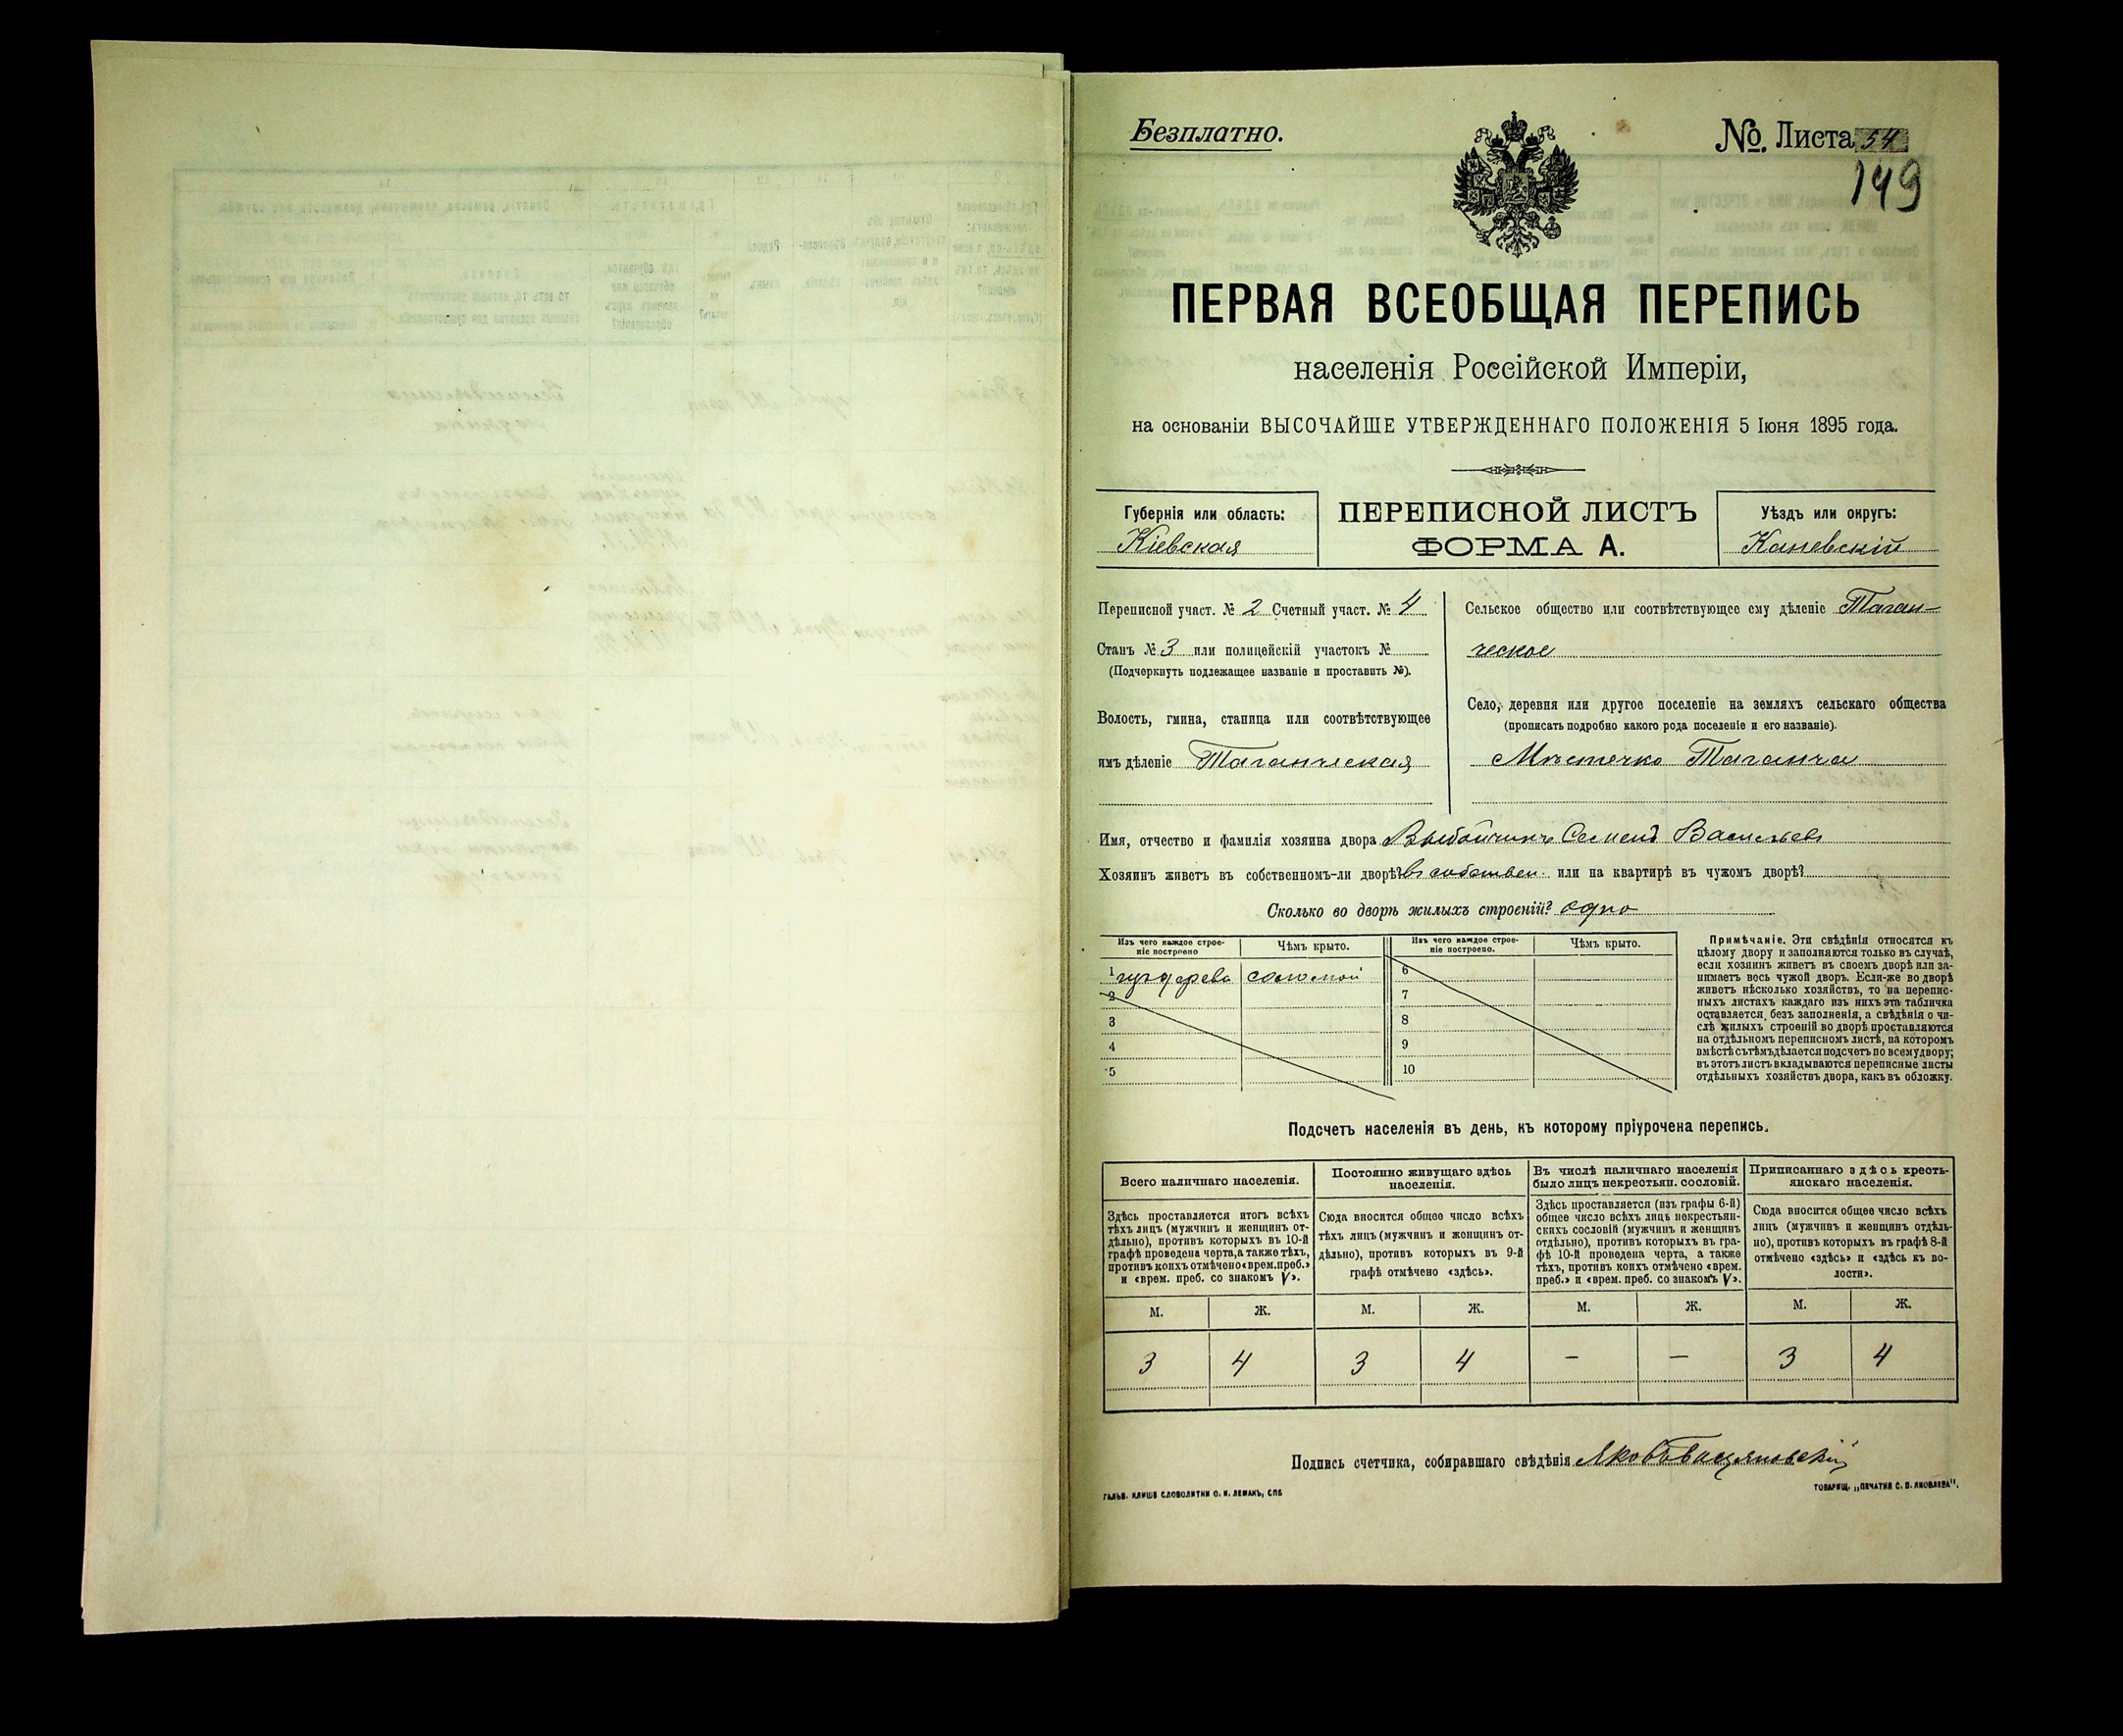 Безплатно.
№. Листа 54
149
ПЕРВАЯ ВСЕОБЩАЯ ПЕРЕПИСЬ
населенія Россійской Имперіи,
на основаніи ВЫСОЧАЙШЕ УТВЕРЖДЕННАГО ПОЛОЖЕНІЯ 5 Іюня 1895 года.
Губернія или область:
Кіевская
ПЕРЕПИСНОЙ ЛИСТЪ
ФОРМА А.
Уѣздъ или округъ:
Каневскій
Переписной участ. № 2 Счетный участ. № 4
Станъ № 3 или полицейскій участокъ №
(Подчеркнуть подлежащее названіе и проставить №).
Волость, гмина, станица или соотвѣтствующее
имъ дѣленіе Таганческая
Сельское общество или соотвѣтствующее ему дѣленіе Таган-
ческое
Село, деревня или другое поселеніе на земляхъ сельскаго общества
(прописать подробно какого рода поселеніе и его названіе).
Мѣстечко Таганча
Имя, отчество и фамилія хозяина двора Семенъ Васильевъ
Хозяинъ живетъ въ собственномъ-ли дворѣ? въ собствен. или на квартирѣ въ чужомъ дворѣ?
Сколько во дворѣ жилыхъ строеній? одно
Изъ чего каждое строе-
ніе построено
Чѣмъ крыто.
Изъ чего каждое строе-
ніе построено.
Чѣмъ крыто.
1 изъ дерева соломой
2
3
4
5
6
7
8
9
10
Примѣчаніе. Эти свѣдѣнія относятся къ
цѣлому двору и заполняются только въ случаѣ,
если хозяинъ живетъ въ своемъ дворѣ или за-
нимаетъ весь чужой дворъ. Если-же во дворѣ
живетъ нѣсколько хозяйствъ, то на перепис-
ныхъ листахъ каждаго изъ нихъ эта табличка
оставляется безъ заполненія, а свѣдѣнія о чи-
слѣ жилыхъ строеній во дворѣ проставляются
на отдѣльномъ переписномъ листѣ, на которомъ
вмѣстѣ съ тѣмъ дѣлается подсчетъ по всему двору;
въ этотъ листъ вкладываются переписные листы
отдѣльныхъ хозяйствъ двора, какъ въ обложку.
Подсчетъ населенія въ день, къ которому пріурочена перепись.
Всего наличнаго населенія.
Здѣсь проставляется итогъ всѣхъ
тѣхъ лицъ (мужчинъ и женщинъ от-
дѣльно), противъ которыхъ въ 10-й
графѣ проведена черта, а также тѣхъ,
противъ коихъ отмѣчено «врем. преб.»
и «врем. преб. со знакомъ V».
Постоянно живущаго здѣсь
населенія.
Сюда вносится общее число всѣхъ
тѣхъ лицъ (мужчинъ и женщинъ от-
дѣльно), противъ которыхъ въ 9-й
графѣ отмѣчено «здѣсь».
Въ числѣ наличнаго населенія
было лицъ некрестьян. сословій.
Здѣсь проставляется (изъ графы 6-й)
общее число всѣхъ лицъ некрестьян-
скихъ сословій (мужчинъ и женщинъ
отдѣльно), противъ которыхъ въ гра-
фѣ 10-й проведена черта, а также
тѣхъ, противъ коихъ отмѣчено «врем.
преб.» и «врем. преб. со знакомъ V».
Приписаннаго здѣсь кресть-
янскаго населенія.
Сюда вносится общее число всѣхъ
лицъ (мужчинъ и женщинъ отдѣль-
но), противъ которыхъ въ графѣ 8-й
отмѣчено «здѣсь» и «здѣсь къ во-
лости».
М. Ж. М. Ж. М. Ж. М. Ж.
3 4 3 4 — — 3 4
Подпись счетчика, собиравшаго свѣдѣнія Яковъ
ГАЛЬВ. КЛИШЕ СЛОВОЛИТНИ О. И. ЛЕМАНЪ, СПБ
ТОВАРИЩ. „ПЕЧАТНЯ С. П. ЯКОВЛЕВА".